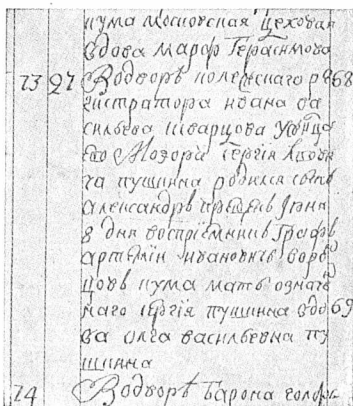 кума московская цеховая
вдова марфа Герасимова
73 27 Водворѣ колежскаго ре 68
гистратора ивана ва
сильева скварцова у жилца
ево Моэора Сергия Львови
ча пушкина родился сынъ
александръ крещенъ Июня
8 дня восприемникъ Графъ
артемий ивановичь ворон
цовъ кума мать означен
наго сергия пушкина вдо 69
ва олга васильевна пу
шкина
74 Водворѣ Барона